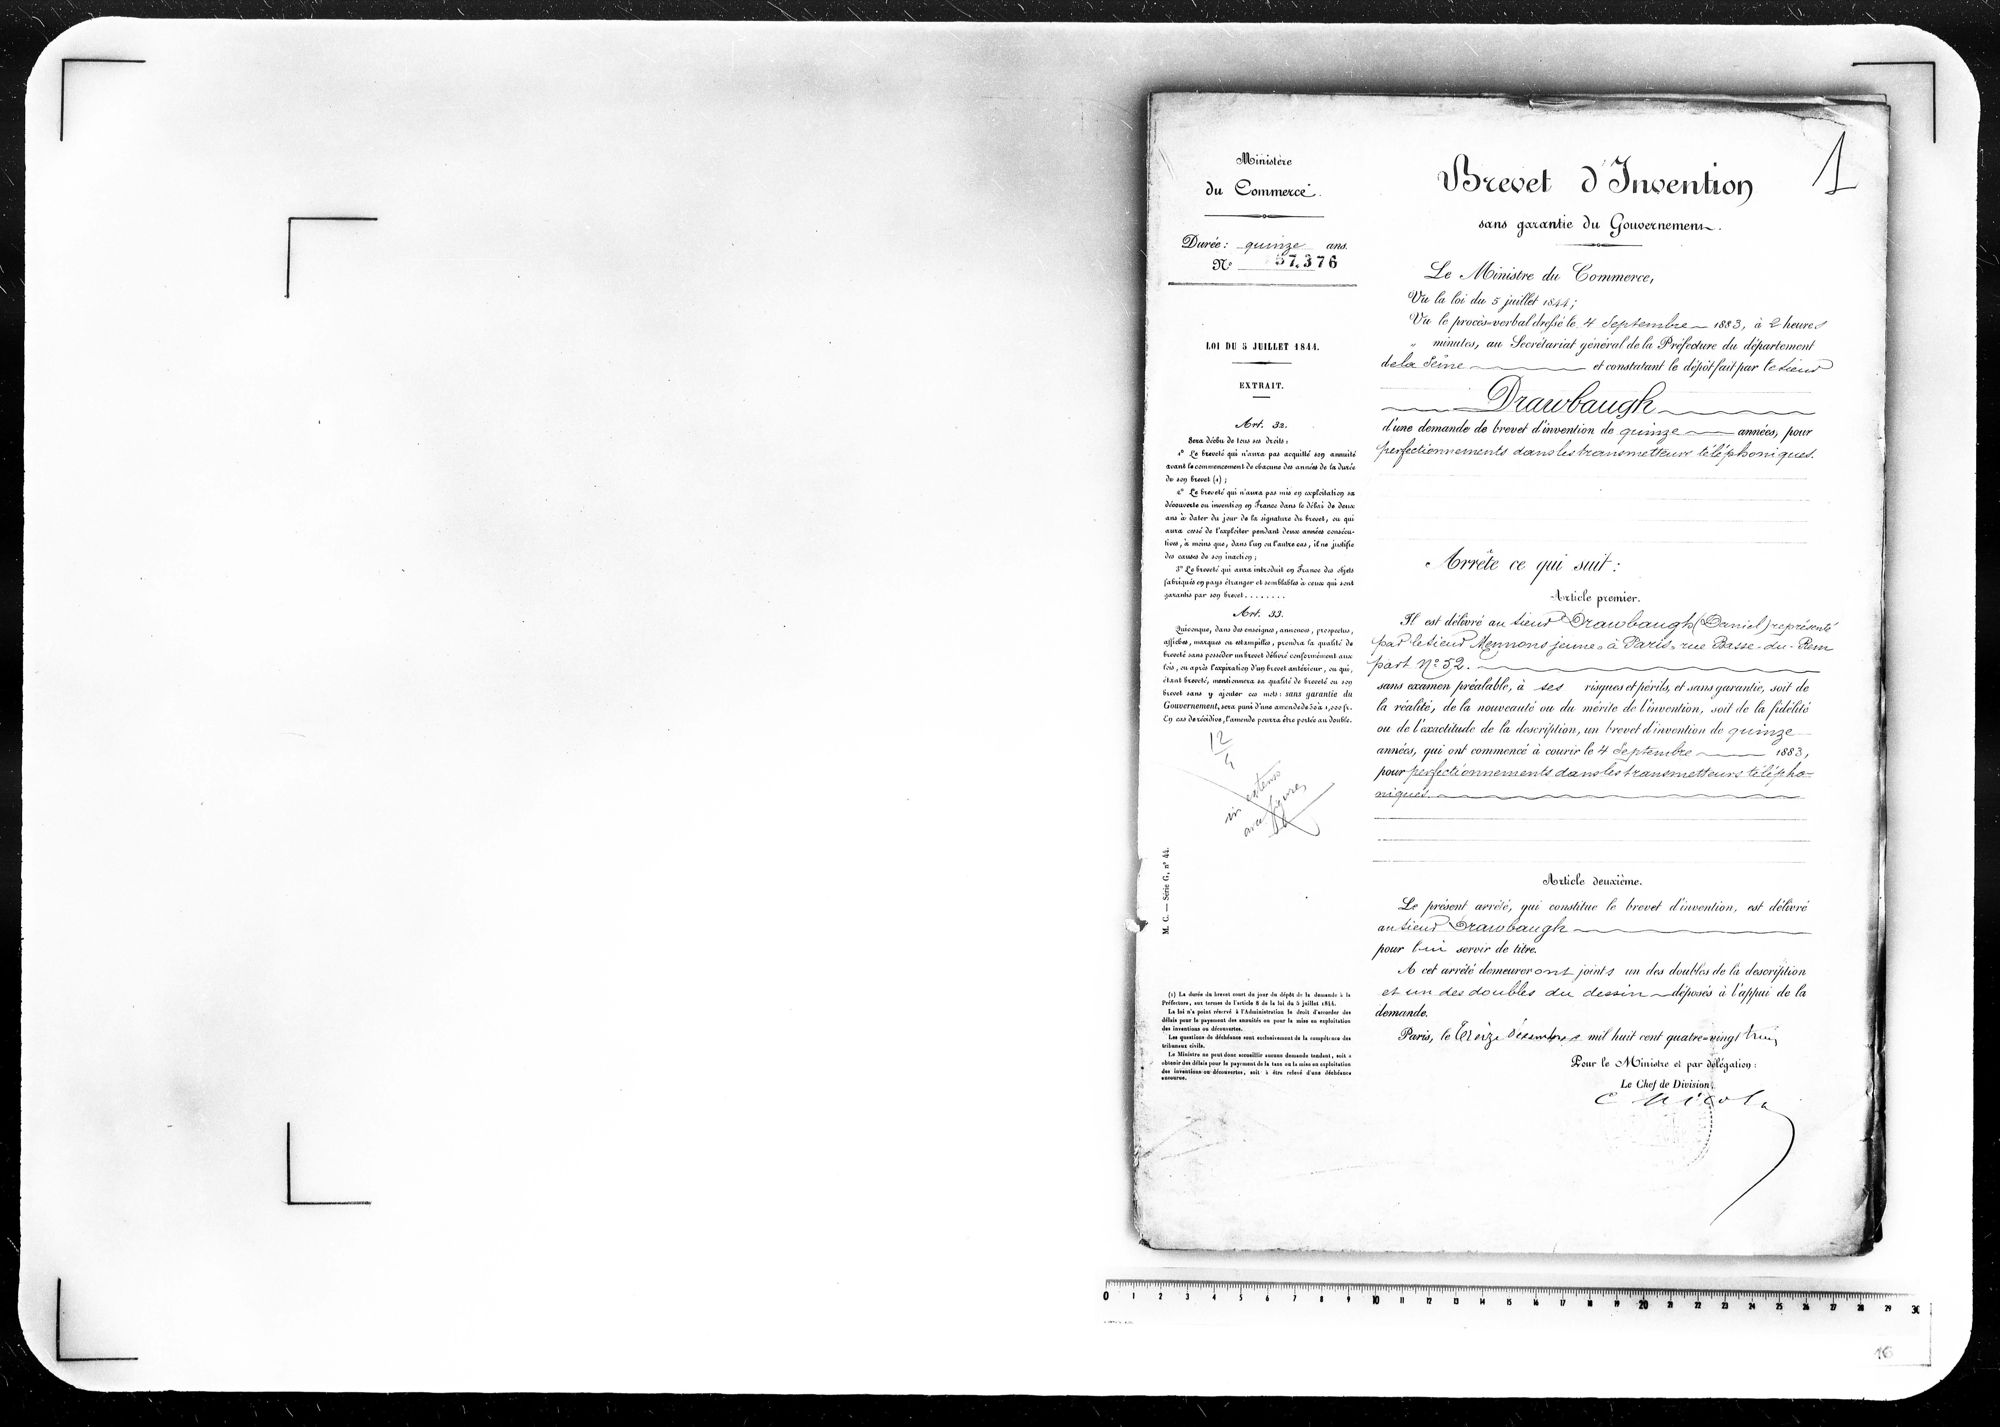 Ministère
du Commerce.
Durée: quinze ans.
N° 57,376
LOI DU 5 JUILLET 1844.
EXTRAIT.
Art. 32.
Sera déchu de tous ses droits:
1° Le breveté qui n'aura pas acquitté son annuité
avant le commencement de chacune des années de la durée
de son brevet (1);
2° Le breveté qui n'aura pas mis en exploitation sa
découverte ou invention en France dans le délai de deux
ans à dater du jour de la signature du brevet, ou qui
aura cessé de l'exploiter pendant deux années consécu-
tives, à moins que, dans l'un ou l'autre cas, il ne justifie
des causes de son inaction;
3° Le breveté qui aura introduit en France des objets
fabriqués en pays étranger et semblables à ceux qui sont
garantis par son brevet........
Art. 33.
Quiconque, dans des enseignes, annonces, prospectus,
affiches, marques ou estampilles, prendra la qualité de
breveté sans posséder un brevet délivré conformément aux
lois, ou après l'expiration d'un brevet antérieur, ou qui,
étant breveté, mentionnera sa qualité de breveté ou son
brevet sans y ajouter ces mots: sans garantie du
Gouvernement, sera puni d'une amende de 50 à 1,000 fr.
En cas de récidive, l'amende pourra être portée au double.
12
4
in extenso
avec figures
M. C. — Série G, n° 44.
(1) La durée du brevet court du jour du dépôt de la demande à la
Préfecture, aux termes de l'article 8 de la loi du 5 juillet 1844.
La loi n'a point réservé à l'Administration le droit d'accorder des
délais pour le payement des annuités ou pour la mise en exploitation
des inventions ou découvertes.
Les questions de déchéance sont exclusivement de la compétence des
tribunaux civils.
Le Ministre ne peut donc accueillir aucune demande tendant, soit à
obtenir des délais pour le payement de la taxe ou la mise en exploitation
des inventions ou découvertes, soit à être relevé d'une déchéance
encourue.
1
Brevet d'Invention
sans garantie du Gouvernement.
Le Ministre du Commerce,
Vu la loi du 5 juillet 1844;
Vu le procès-verbal dressé le 4 Septembre 1883, à 2 heures
" minutes, au Secrétariat général de la Préfecture du département
de la Seine et constatant le dépôt fait par le sieur
Drawbaugh
d'une demande de brevet d'invention de quinze années, pour
perfectionnements dans les transmetteurs téléphoniques.
Arrête ce qui suit:
Article premier.
Il est délivré au sieur Drawbaugh (Daniel) représenté
par le sieur Mennons jeune, à Paris, rue Basse-du-Rem
part N° 52.
sans examen préalable, à ses risques et périls, et sans garantie, soit de
la réalité, de la nouveauté ou du mérite de l'invention, soit de la fidélité
ou de l'exactitude de la description, un brevet d'invention de quinze
années, qui ont commencé à courir le 4 Septembre 1883,
pour perfectionnements dans les transmetteurs télépho-
niques.
Article deuxième.
Le présent arrêté, qui constitue le brevet d'invention, est délivré
au sieur Drawbaugh
pour lui servir de titre.
A cet arrêté demeureront joints un des doubles de la description
et un des doubles du dessin déposés à l'appui de la
demande.
Paris, le treize décembre mil huit cent quatre-vingt trois
Pour le Ministre et par délégation:
Le Chef de Division,
0 1 2 3 4 5 6 7 8 9 10 11 12 13 14 15 16 17 18 19 20 21 22 23 24 25 26 27 28 29 30